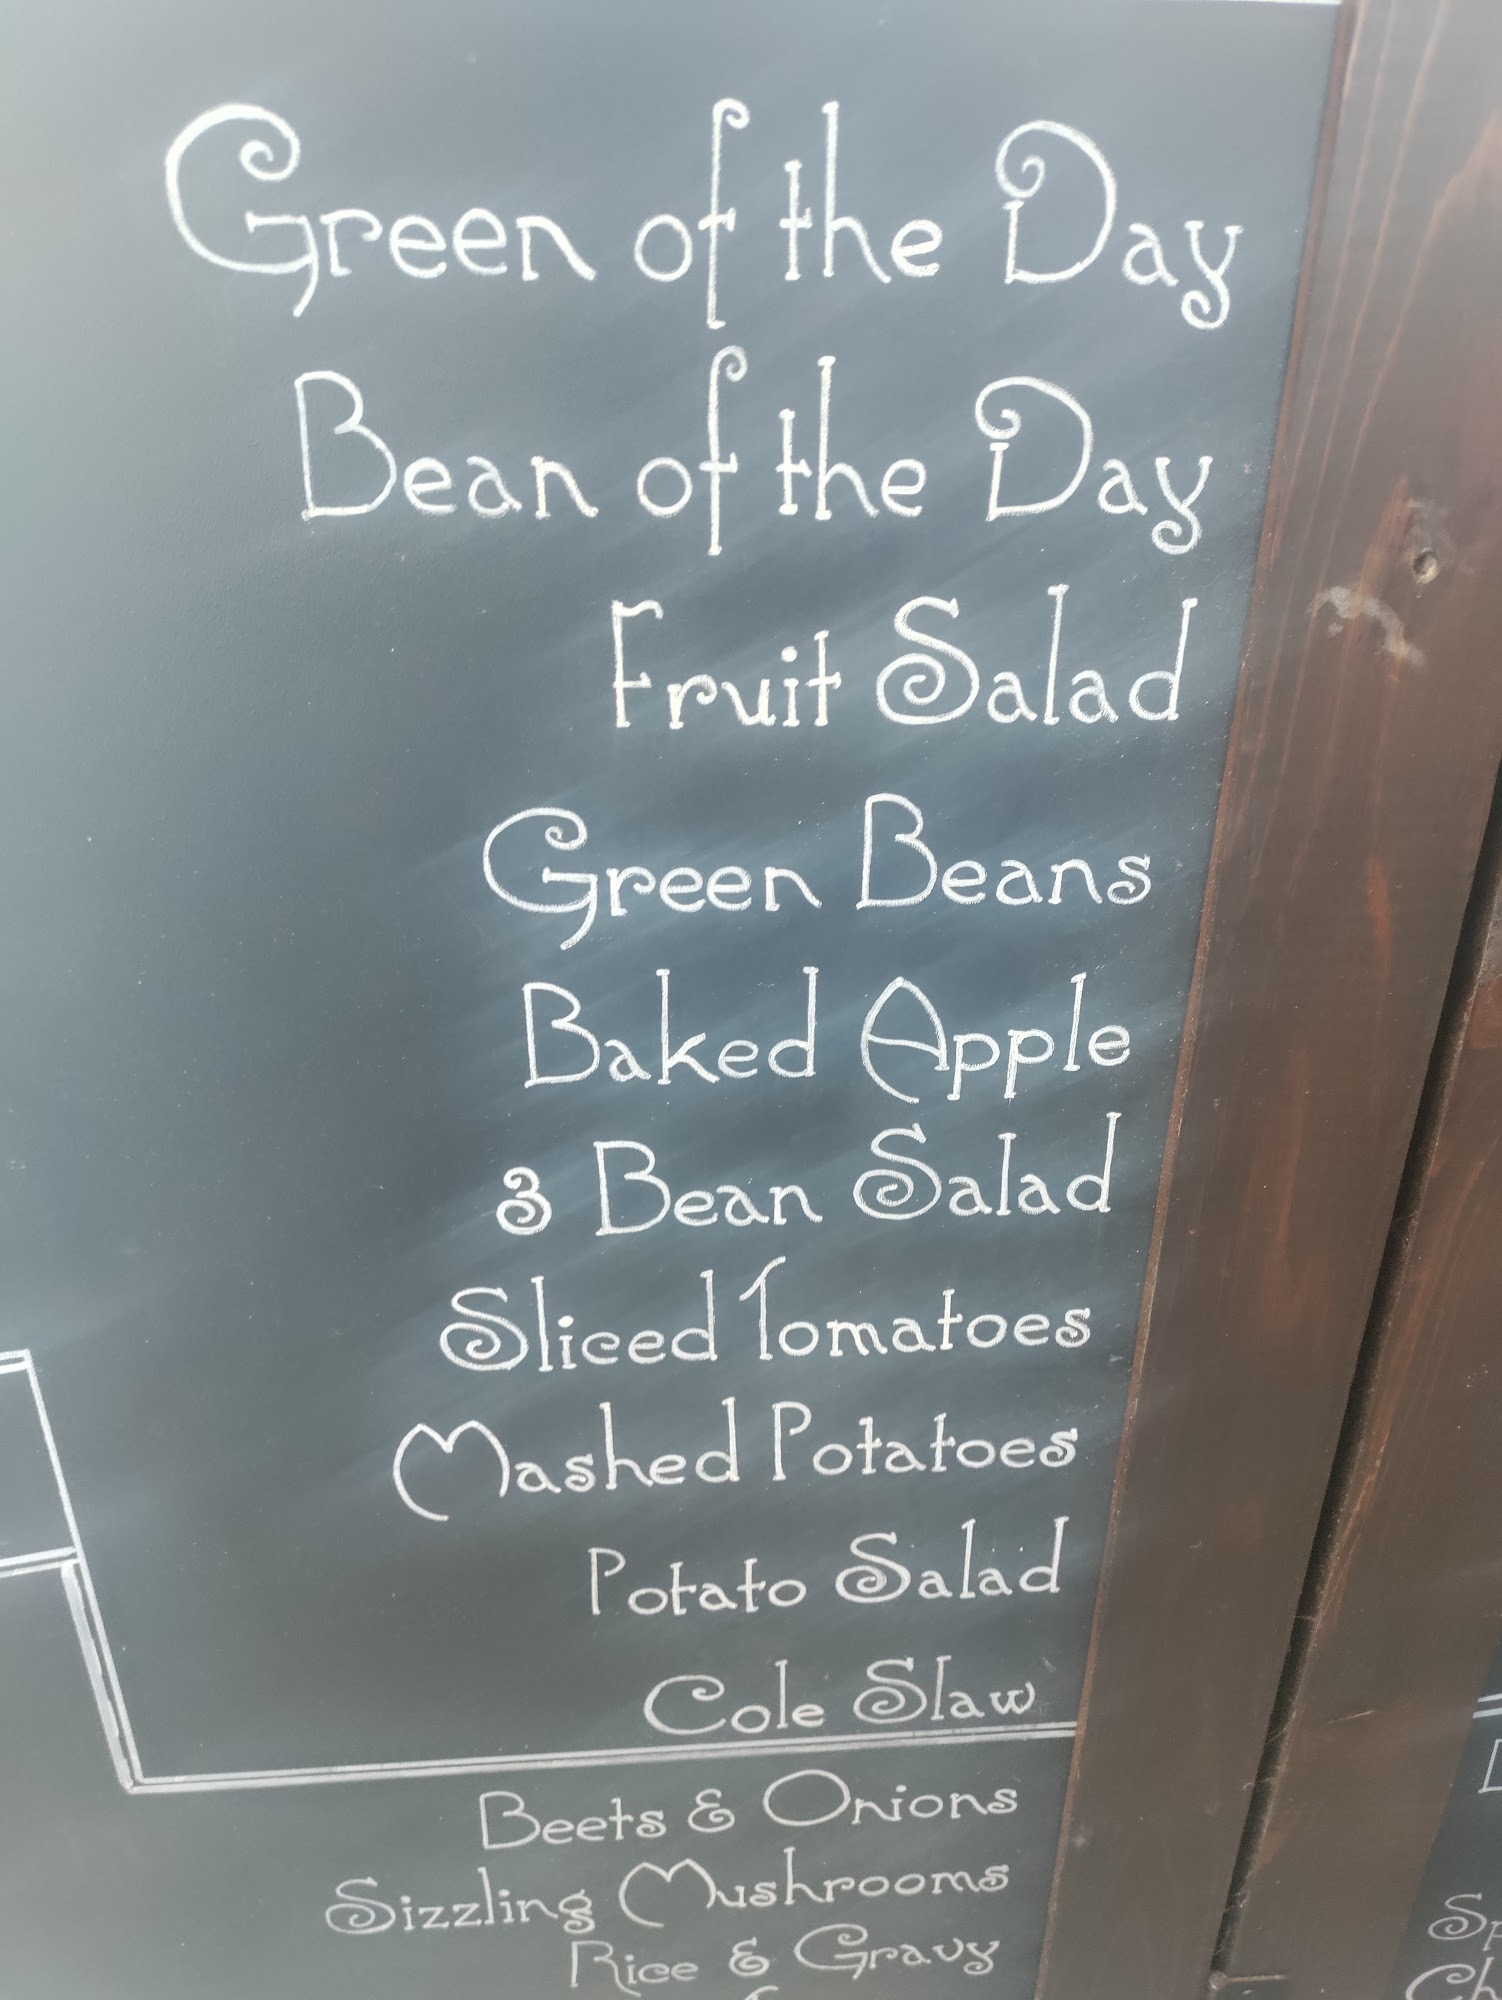 Green of the Day
Bean of the Day
Fruit Salad
Green Beans
Baked Apple
3 Bean Salad
Sliced Tomatoes
Mashed Potatoes
Potato Salad
Cole Slaw
Beets & Onions
Sizzling Mushrooms
Rice & Gravy